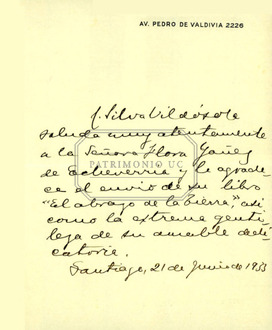 AV. PEDRO DE VALDIVIA 2226
C. Silva Vildósola
saluda muy atentamente
a la Señora Flora Yañez
de Echeverria y le agrade-
ce el envio de su libro
"El abrazo de la tierra," asi
como la extrema genti-
leza de su amable dedi-
catoria.
Santiago, 21 de Junio de 1933
PATRIMONIO UC